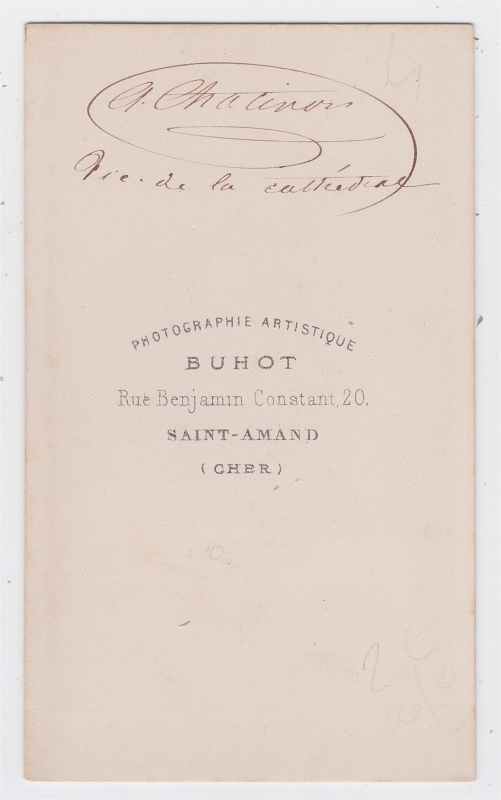 A. Chatinon
Vic. de la cathédrale
PHOTOGRAPHIE ARTISTIQUE
BUHOT
Rue Benjamin Constant, 20.
SAINT-AMAND
(CHER)